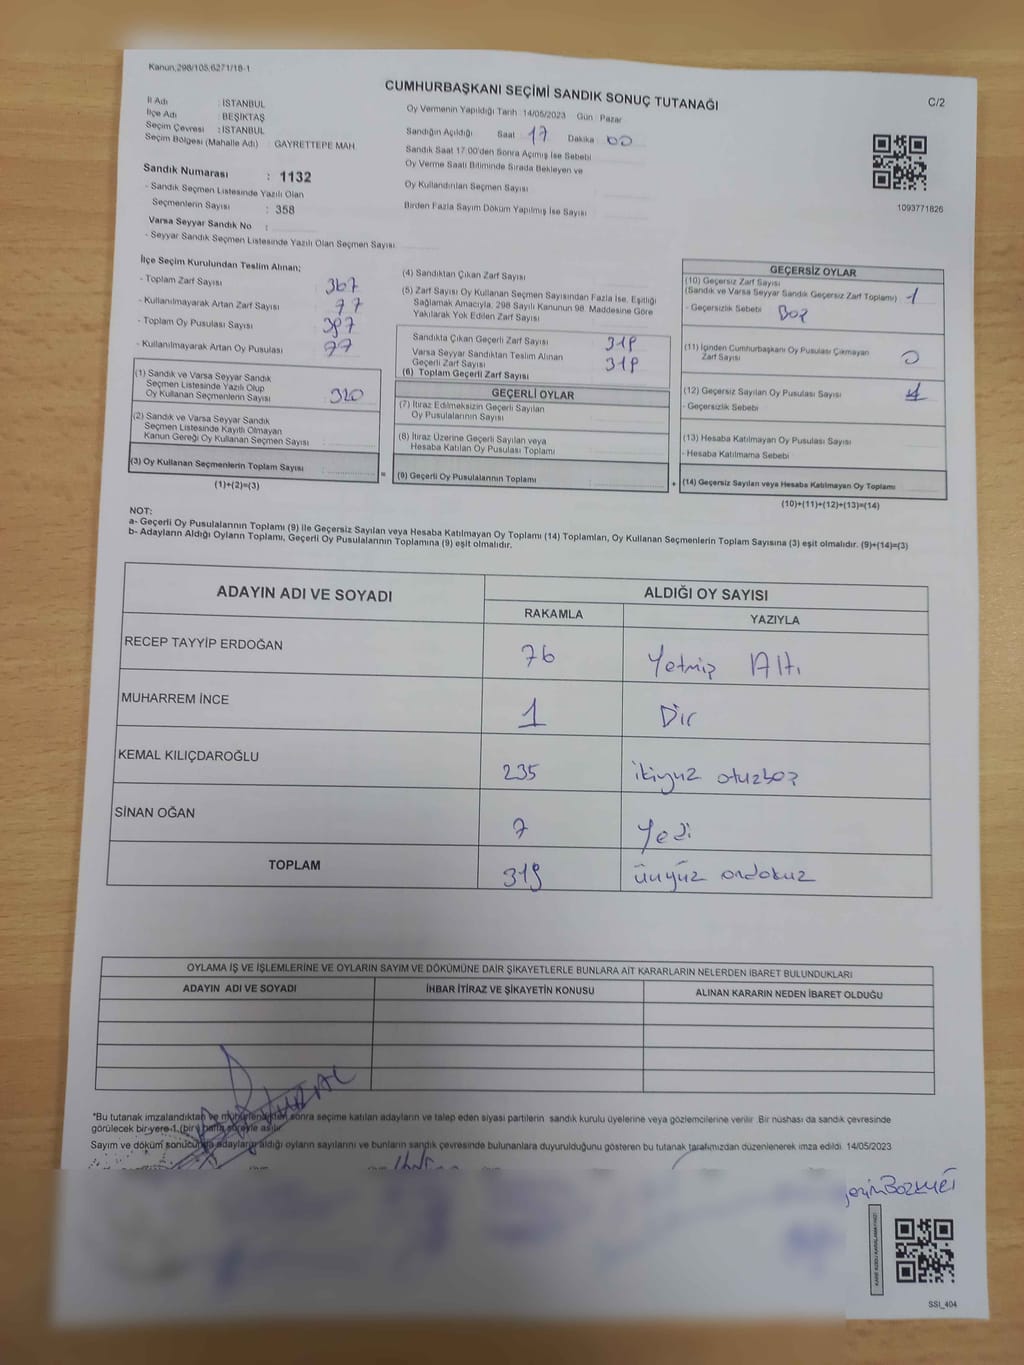 Kanun,298/105,6271/18-1
CUMHURBAŞKANI SEÇİMİ SANDIK SONUÇ TUTANAĞI
C/2
İl Adı : İSTANBUL
İlçe Adı : BEŞİKTAŞ
Seçim Çevresi : İSTANBUL
Seçim Bölgesi (Mahalle Adı) : GAYRETTEPE MAH
Sandık Numarası : 1132
- Sandık Seçmen Listesinde Yazılı Olan
Seçmenlerin Sayısı : 358
Varsa Seyyar Sandık No :
- Seyyar Sandık Seçmen Listesinde Yazılı Olan Seçmen Sayısı
Oy Vermenin Yapıldığı Tarih 14/05/2023 Gün Pazar
Sandığın Açıldığı Saat 17 Dakika 00
Sandık Saat 17:00'den Sonra Açımış İse Sebebi
Oy Verme Saati Bitiminde Sırada Bekleyen ve
Oy Kullandırılan Seçmen Sayısı
Birden Fazla Sayım Döküm Yapılmış İse Sayısı
1093771826
İlçe Seçim Kurulundan Teslim Alınan;
- Toplam Zarf Sayısı 367
- Kullanılmayarak Artan Zarf Sayısı 77
- Toplam Oy Pusulası Sayısı 397
- Kullanılmayarak Artan Oy Pusulası 77
(1) Sandık ve Varsa Seyyar Sandık
Seçmen Listesinde Yazılı Olup
Oy Kullanan Seçmenlerin Sayısı 320
(2) Sandık ve Varsa Seyyar Sandık
Seçmen Listesinde Kayıtlı Olmayan
Kanun Gereği Oy Kullanan Seçmen Sayısı
(3) Oy Kullanan Seçmenlerin Toplam Sayısı :
(1)+(2)=(3)
=
(4) Sandıktan Çıkan Zarf Sayısı
(5) Zarf Sayısı Oy Kullanan Seçmen Sayısından Fazla İse, Eşitliği
Sağlamak Amacıyla, 298 Sayılı Kanunun 98. Maddesine Göre
Yakılarak Yok Edilen Zarf Sayısı
Sandıkta Çıkan Geçerli Zarf Sayısı 319
Varsa Seyyar Sandıktan Teslim Alınan
Geçerli Zarf Sayısı 319
(6) Toplam Geçerli Zarf Sayısı
GEÇERLİ OYLAR
(7) İtiraz Edilmeksizin Geçerli Sayılan
Oy Pusulalarının Sayısı
(8) İtiraz Üzerine Geçerli Sayılan veya
Hesaba Katılan Oy Pusulası Toplamı
(9) Geçerli Oy Pusulalarının Toplamı
+
GEÇERSİZ OYLAR
(10) Geçersiz Zarf Sayısı
(Sandık ve Varsa Seyyar Sandık Geçersiz Zarf Toplamı) 1
- Geçersizlik Sebebi Boş
(11) İçinden Cumhurbaşkanı Oy Pusulası Çıkmayan
Zarf Sayısı 0
(12) Geçersiz Sayılan Oy Pusulası Sayısı
- Geçersizlik Sebebi
(13) Hesaba Katılmayan Oy Pusulası Sayısı
- Hesaba Katılmama Sebebi
(14) Geçersiz Sayılan veya Hesaba Katılmayan Oy Toplamı
(10)+(11)+(12)+(13)=(14)
NOT:
a- Geçerli Oy Pusulalarının Toplamı (9) ile Geçersiz Sayılan veya Hesaba Katılmayan Oy Toplamı (14) Toplamları, Oy Kullanan Seçmenlerin Toplam Sayısına (3) eşit olmalıdır. (9)+(14)=(3)
b- Adayların Aldığı Oyların Toplamı, Geçerli Oy Pusulalarının Toplamına (9) eşit olmalıdır.
ADAYIN ADI VE SOYADI
ALDIĞI OY SAYISI
RAKAMLA YAZIYLA
RECEP TAYYİP ERDOĞAN 76 Yetmiş Altı
MUHARREM İNCE 1 Bir
KEMAL KILIÇDAROĞLU 235 ikiyüz otuzbeş
SİNAN OĞAN 7 Yedi
TOPLAM 319 üçyüz ondokuz
OYLAMA İŞ VE İŞLEMLERİNE VE OYLARIN SAYIM VE DÖKÜMÜNE DAİR ŞİKAYETLERLE BUNLARA AİT KARARLARIN NELERDEN İBARET BULUNDUKLARI
ADAYIN ADI VE SOYADI İHBAR İTİRAZ VE ŞİKAYETİN KONUSU ALINAN KARARIN NEDEN İBARET OLDUĞU
*Bu tutanak imzalandıktan ve mühürlendikten sonra seçime katılan adayların ve talep eden siyasi partilerin sandık kurulu üyelerine veya gözlemcilerine verilir. Bir nüshası da sandık çevresinde
görülecek bir yere 1 (bir) hafta süreyle asılır.
Sayım ve döküm sonucunda adayların aldığı oyların sayılarını ve bunların sandık çevresinde bulunanlara duyurulduğunu gösteren bu tutanak tarafımızdan düzenlenerek imza edildi. 14/05/2023
SSI_404